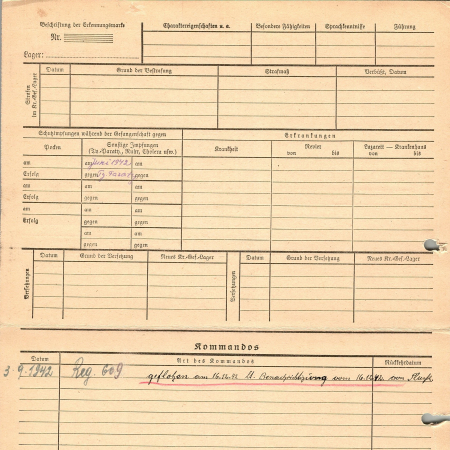 Beschriftung der Erkennungsmarke
Nr.
Lager:
Charaktereigenschaften u. a.
Besondere Fähigkeiten
Sprachkenntnisse
Führung
Strafen im Kr.-Gef.-Lager
Datum
Grund der Bestrafung
Strafmaß
Verbüßt, Datum
Schutzimpfungen während der Gefangenschaft gegen
Erkrankungen
Pocken
Sonstige Impfungen
(Ty.-Paraty., Ruhr, Cholera usw.)
Krankheit
Revier
von bis
Lazarett — Krankenhaus
von bis
am am Juni 1942 am
Erfolg gegen Ty. Paraty. gegen
am am am
Erfolg gegen gegen
am am am
Erfolg gegen gegen
am am
gegen gegen
Versetzungen
Datum
Grund der Versetzung
Neues Kr.-Gef.-Lager
Versetzungen
Datum
Grund der Versetzung
Neues Kr.-Gef.-Lager
Kommandos
Datum
Art des Kommandos
Rückkehrdatum
3.9.1942 Reg. 609
geflohen am 16.12.42 lt. Benachrichtigung vom 16.12.42 von